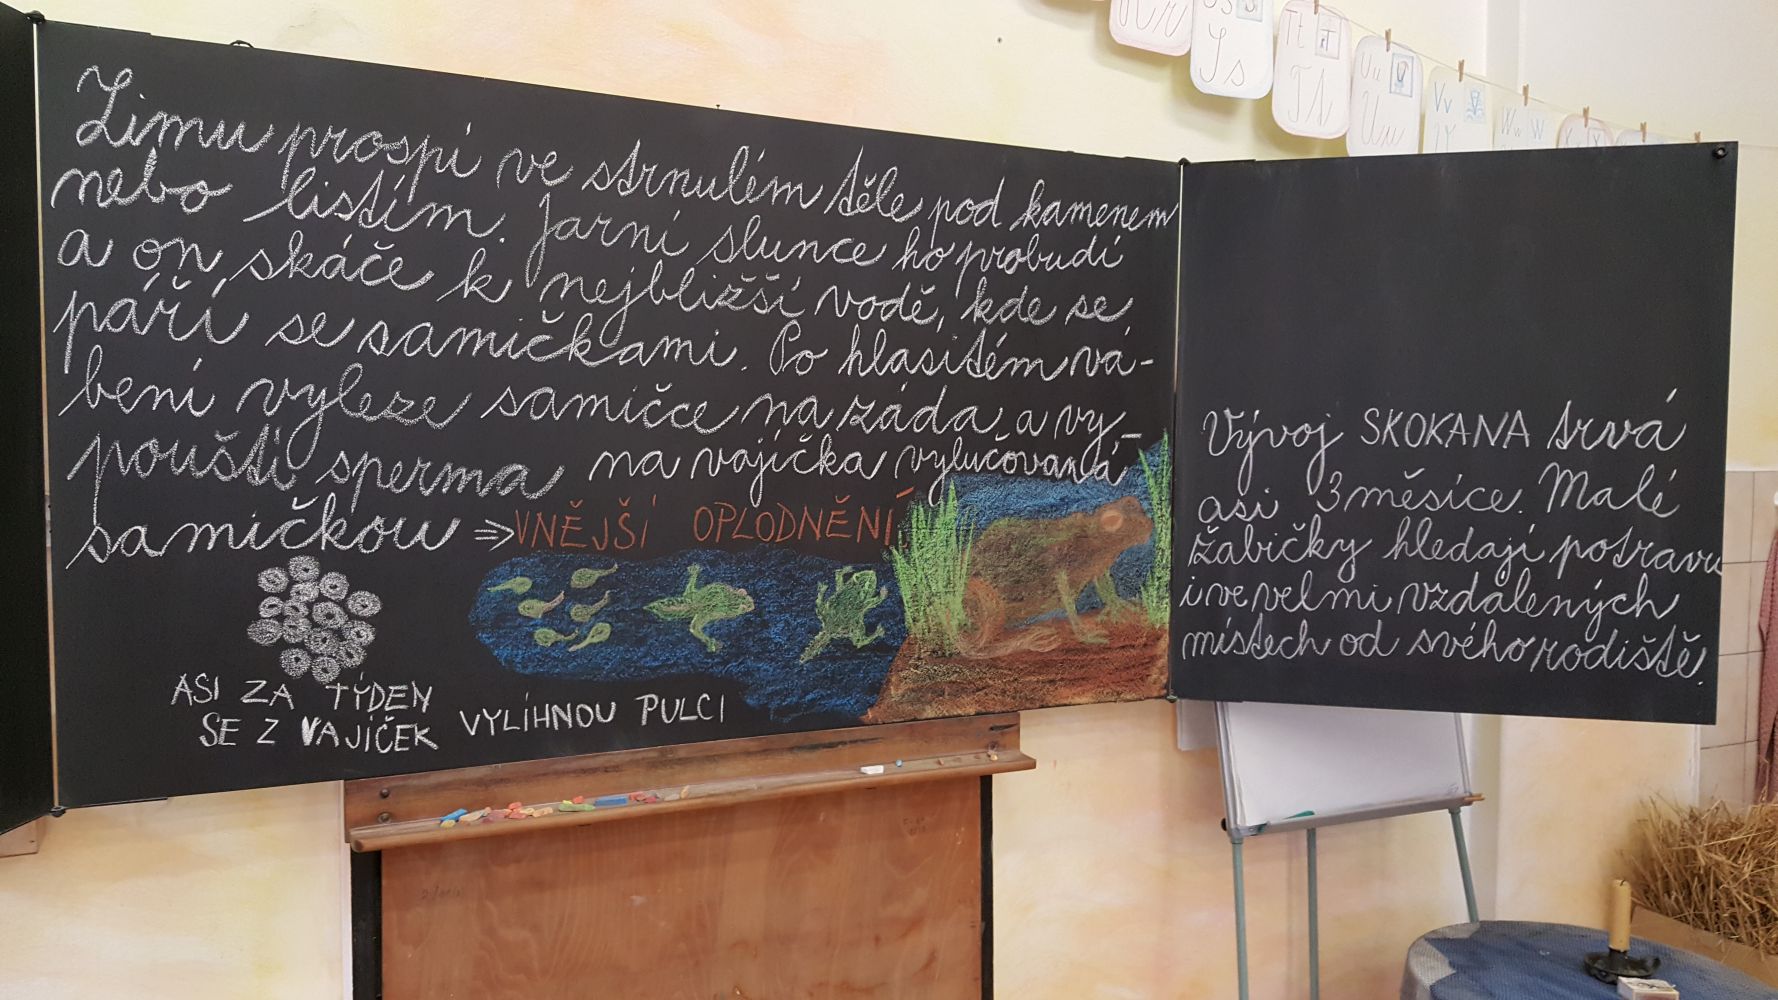 Zimu prospí ve strnulém těle pod kamenem
nebo listím. Jarní slunce ho probudí
a on skáče k nejbližší vodě, kde se
páří se samičkami. Po hlasitém vá-
bení vyleze samičce na záda a vy-
pouští sperma na vajíčka vylučovaná
samičkou => VNĚJŠÍ OPLODNĚNÍ.
ASI ZA TÝDEN
SE Z VAJÍČEK VYLÍHNOU PULCI
Vývoj SKOKANA trvá
asi 3 měsíce. Malé
žabičky hledají potravu
i ve velmi vzdálených
místech od svého rodiště.
S s
Tt T
Uu U
U u
Vv V
Ww W